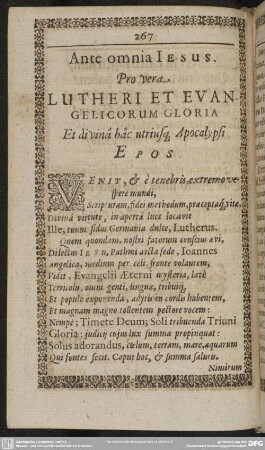 267
Ante omnia IESUS.
Pro vera
LUTHERI ET EVAN-
GELICORUM GLORIA
Et divinâ hâc utriusq, Apocalypsi
EPOS
VENIT, & è tenebris extremo ve-
spere mundi,
Scripturam, fidei methodum, præceptaq; vitæ,
Divinâ virtute, in apertâ luce locavit
Ille, tuum sidus Germania dulce, Lutherus.
Quem quondam, nostri fatorum conscius ævi,
Dilectus IESU, Pathmi arctâ sede, Joannes
Angelicâ, medium per cœli, fronte volantem,
Vidit, Evangelii Æterni mysteria, latè
Terricolis, omni genti, linguæ, tribuiq,
Et populo exponenda, adytis in cordis habentem,
Et magnam magno tollentem pectore vocem:
Nempè; Timete Deum; Soli tribuenda Triuni
Gloria: judicij cujus lux summa propinquat:
Solus adorandus, cœlum, terram, mare, aquarum
Qui fontes fecit. Caput hoc, & summa salutis.
Nimirum